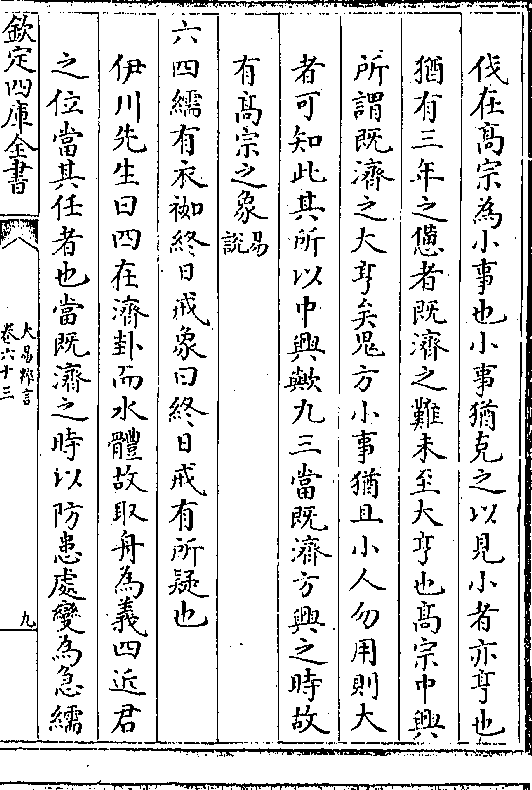 伐在髙宗為小事也小事猶克之以見小者亦亨也
猶有三年之憊者既濟之難未至大亨也髙宗中興
所謂既濟之大亨矣鬼方小事猶且小人勿用則大
者可知此其所以中興歟九三當既濟方興之時故
有髙宗之象易說
六四繻有衣袽終日戒象曰終日戒有所疑也
伊川先生曰四在濟卦而水體故取舟為義四近君
之位當其任者也當既濟之時以防患處變為急繻
欽定四庫全書
大易粹言
卷六十三
九